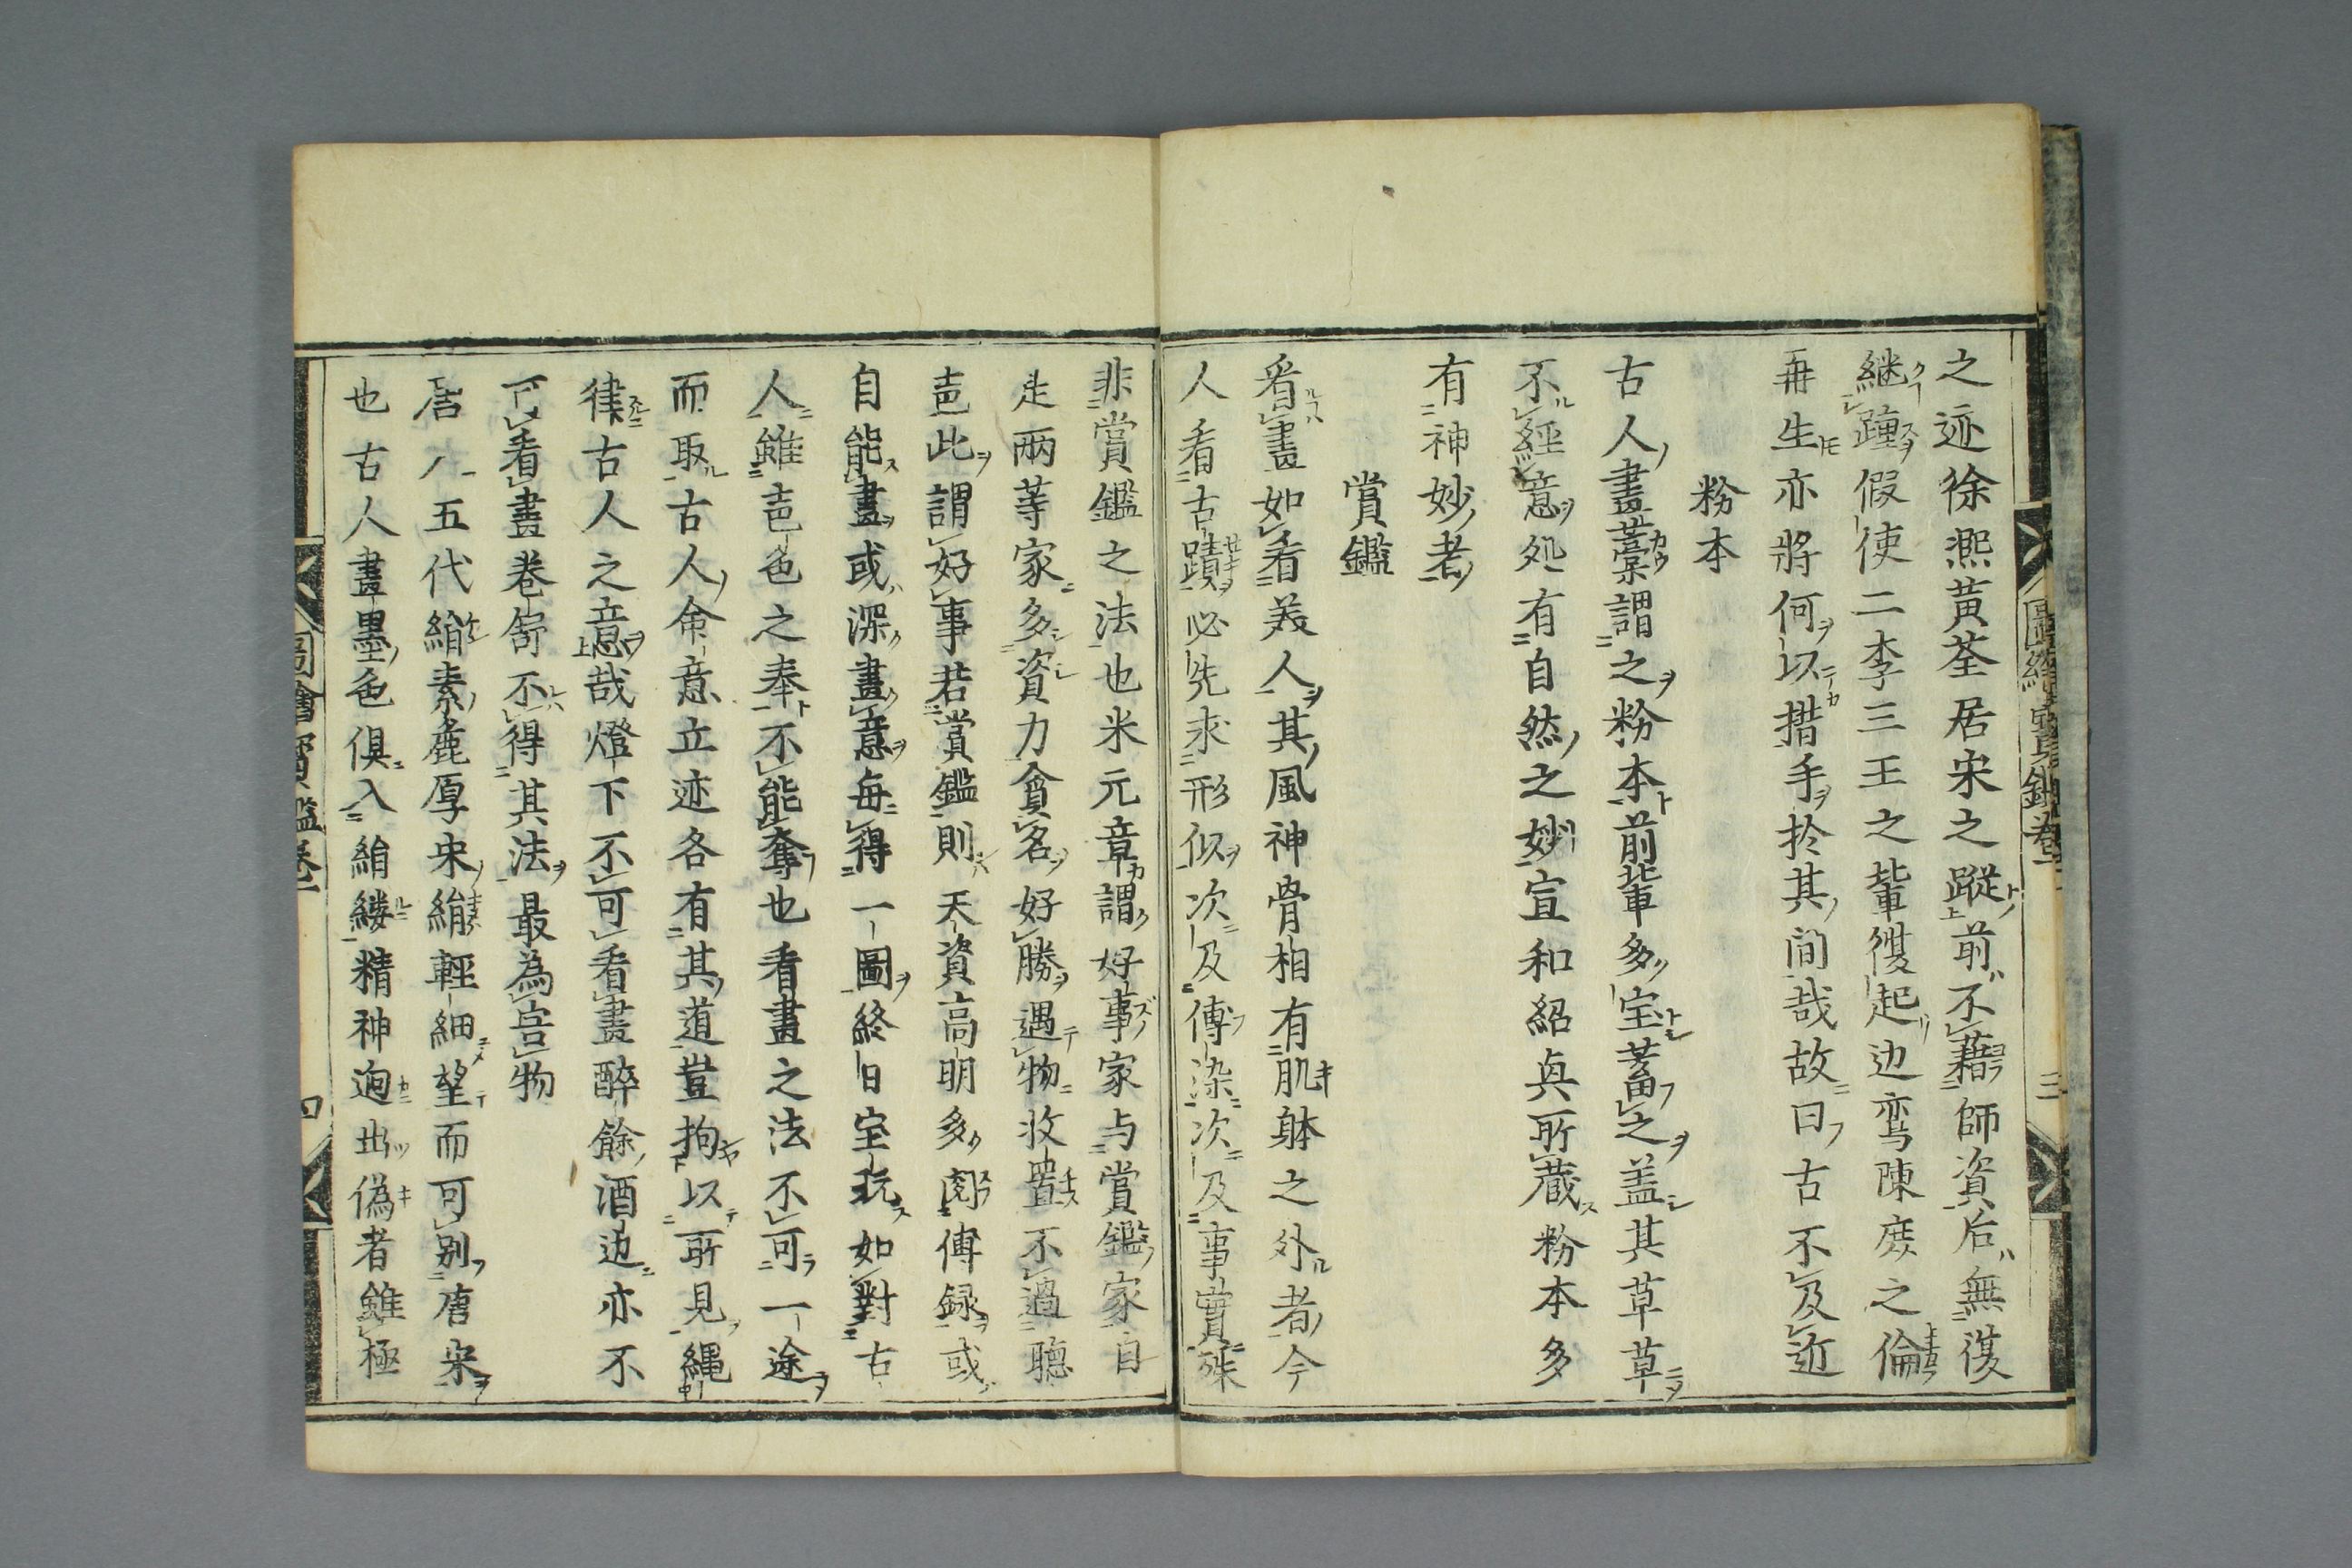 之迹徐熙黄荃居宋之蹤前不藉師資后無復
継踵假使二李三王之輩復起边鸞陳庶之倫
再生亦將何以措手扵其间哉故曰古不及近
粉本
古人畫藁謂之粉本前輩多宝蓄之盖其草草
不經意処有自然之妙宣和紹興所蔵粉本多
有神妙者
賞鑑
看畫如看美人其風神骨相有肌躰之外者今
人看古蹟必先求形似次及傳染次及事實殊
非賞鑑之法也米元章謂好事家与賞鑑家自
是兩等家多資力貪名好勝遇物收置不過聽
声此謂好事若賞鑑則天資高明多閲傳録或
自能畫或深畫意每得一圖終日宝玩如對古
人雖声色之奉不能奪也看畫之法不可一途
而取古人命意立迹各有其道豈拘以所見繩
律古人之意哉燈下不可看畫醉餘酒边亦不
可看畫卷舒不得其法最為害物
唐人五代絹素麁厚宋絹輕細望而可别唐宋
也古人畫墨色俱入絹縷精神迥出偽者雖極
圖繪寳鑑卷一
三
四